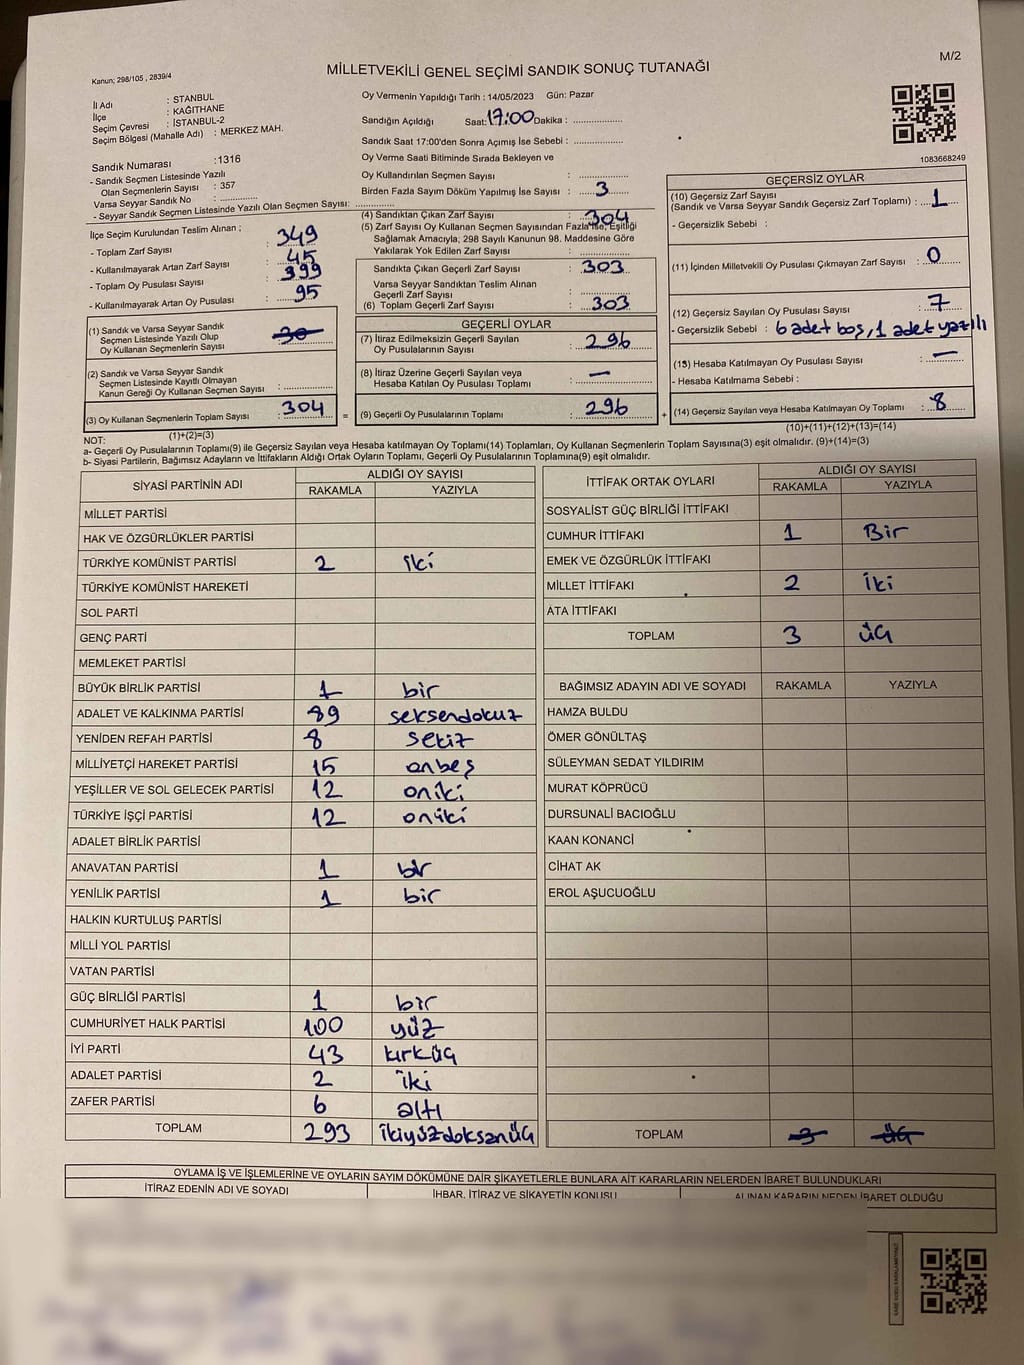 M/2
Kanun; 298/105 , 2839/4
MİLLETVEKİLİ GENEL SEÇİMİ SANDIK SONUÇ TUTANAĞI
İl Adı : STANBUL
İlçe : KAĞITHANE
Seçim Çevresi : İSTANBUL-2
Seçim Bölgesi (Mahalle Adı) : MERKEZ MAH.
Sandık Numarası :1316
- Sandık Seçmen Listesinde Yazılı
Olan Seçmenlerin Sayısı : 357
Varsa Seyyar Sandık No : ..................
- Seyyar Sandık Seçmen Listesinde Yazılı Olan Seçmen Sayısı: ..................
Oy Vermenin Yapıldığı Tarih : 14/05/2023 Gün: Pazar
Sandığın Açıldığı Saat: 17:00 Dakika : ..................
Sandık Saat 17:00'den Sonra Açımış İse Sebebi : ..................
Oy Verme Saati Bitiminde Sırada Bekleyen ve
Oy Kullandırılan Seçmen Sayısı : ..................
Birden Fazla Sayım Döküm Yapılmış İse Sayısı : 3
1083668249
İlçe Seçim Kurulundan Teslim Alınan ;
- Toplam Zarf Sayısı : 349
- Kullanılmayarak Artan Zarf Sayısı : 45
- Toplam Oy Pusulası Sayısı : 399
- Kullanılmayarak Artan Oy Pusulası : 95
(1) Sandık ve Varsa Seyyar Sandık
Seçmen Listesinde Yazılı Olup
Oy Kullanan Seçmenlerin Sayısı : 30
(2) Sandık ve Varsa Seyyar Sandık
Seçmen Listesinde Kayıtlı Olmayan
Kanun Gereği Oy Kullanan Seçmen Sayısı : ..................
(3) Oy Kullanan Seçmenlerin Toplam Sayısı : 304 =
(1)+(2)=(3)
(4) Sandıktan Çıkan Zarf Sayısı : 304
(5) Zarf Sayısı Oy Kullanan Seçmen Sayısından Fazla ise, Eşitliği
Sağlamak Amacıyla; 298 Sayılı Kanunun 98. Maddesine Göre
Yakılarak Yok Edilen Zarf Sayısı : ..................
Sandıkta Çıkan Geçerli Zarf Sayısı : 303
Varsa Seyyar Sandıktan Teslim Alınan
Geçerli Zarf Sayısı : ..................
(6) Toplam Geçerli Zarf Sayısı : 303
GEÇERLİ OYLAR
(7) İtiraz Edilmeksizin Geçerli Sayılan
Oy Pusulalarının Sayısı : 296
(8) İtiraz Üzerine Geçerli Sayılan veya
Hesaba Katılan Oy Pusulası Toplamı : —
(9) Geçerli Oy Pusulalarının Toplamı : 296 +
GEÇERSİZ OYLAR
(10) Geçersiz Zarf Sayısı
(Sandık ve Varsa Seyyar Sandık Geçersiz Zarf Toplamı) : 1
- Geçersizlik Sebebi :
(11) İçinden Milletvekili Oy Pusulası Çıkmayan Zarf Sayısı : 0
(12) Geçersiz Sayılan Oy Pusulası Sayısı : 7
- Geçersizlik Sebebi : 6 adet boş, 1 adet yazılı
(13) Hesaba Katılmayan Oy Pusulası Sayısı : —
- Hesaba Katılmama Sebebi :
(14) Geçersiz Sayılan veya Hesaba Katılmayan Oy Toplamı : 8
(10)+(11)+(12)+(13)=(14)
NOT:
a- Geçerli Oy Pusulalarının Toplamı(9) ile Geçersiz Sayılan veya Hesaba katılmayan Oy Toplamı(14) Toplamları, Oy Kullanan Seçmenlerin Toplam Sayısına(3) eşit olmalıdır. (9)+(14)=(3)
b- Siyasi Partilerin, Bağımsız Adayların ve İttifakların Aldığı Ortak Oyların Toplamı, Geçerli Oy Pusulalarının Toplamına(9) eşit olmalıdır.
SİYASİ PARTİNİN ADI ALDIĞI OY SAYISI
RAKAMLA YAZIYLA
MİLLET PARTİSİ
HAK VE ÖZGÜRLÜKLER PARTİSİ
TÜRKİYE KOMÜNİST PARTİSİ 2 iki
TÜRKİYE KOMÜNİST HAREKETİ
SOL PARTİ
GENÇ PARTİ
MEMLEKET PARTİSİ
BÜYÜK BİRLİK PARTİSİ 1 bir
ADALET VE KALKINMA PARTİSİ 89 seksendokuz
YENİDEN REFAH PARTİSİ 8 sekiz
MİLLİYETÇİ HAREKET PARTİSİ 15 onbeş
YEŞİLLER VE SOL GELECEK PARTİSİ 12 oniki
TÜRKİYE İŞÇİ PARTİSİ 12 oniki
ADALET BİRLİK PARTİSİ
ANAVATAN PARTİSİ 1 bir
YENİLİK PARTİSİ 1 bir
HALKIN KURTULUŞ PARTİSİ
MİLLİ YOL PARTİSİ
VATAN PARTİSİ
GÜÇ BİRLİĞİ PARTİSİ 1 bir
CUMHURİYET HALK PARTİSİ 100 yüz
İYİ PARTİ 43 kırküç
ADALET PARTİSİ 2 iki
ZAFER PARTİSİ 6 altı
TOPLAM 293 ikiyüzdoksanüç
İTTİFAK ORTAK OYLARI ALDIĞI OY SAYISI
RAKAMLA YAZIYLA
SOSYALİST GÜÇ BİRLİĞİ İTTİFAKI
CUMHUR İTTİFAKI 1 Bir
EMEK VE ÖZGÜRLÜK İTTİFAKI
MİLLET İTTİFAKI 2 İki
ATA İTTİFAKI
TOPLAM 3 üç
BAĞIMSIZ ADAYIN ADI VE SOYADI RAKAMLA YAZIYLA
HAMZA BULDU
ÖMER GÖNÜLTAŞ
SÜLEYMAN SEDAT YILDIRIM
MURAT KÖPRÜCÜ
DURSUNALİ BACIOĞLU
KAAN KONANCİ
CİHAT AK
EROL AŞUCUOĞLU
TOPLAM 3 üç
OYLAMA İŞ VE İŞLEMLERİNE VE OYLARIN SAYIM DÖKÜMÜNE DAİR ŞİKAYETLERLE BUNLARA AİT KARARLARIN NELERDEN İBARET BULUNDUKLARI
İTİRAZ EDENİN ADI VE SOYADI İHBAR, İTİRAZ VE ŞİKAYETİN KONUSU ALINAN KARARIN NEDEN İBARET OLDUĞU